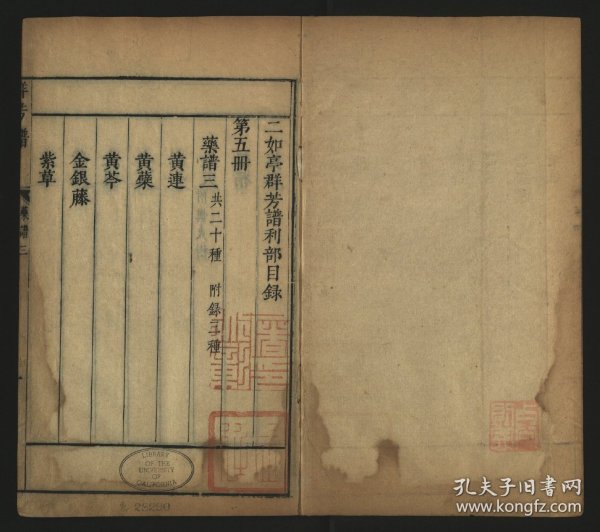 二如亭群芳譜利部目錄
第五冊
藥譜三 共二十種 附錄三種
黃連
黃蘗
黃芩
金銀藤
紫草
群芳譜
藥譜三
LIBRARY
OF THE
UNIVERSITY
OF
CALIFORNIA
23290
孔夫子旧书网
www.kongfz.com